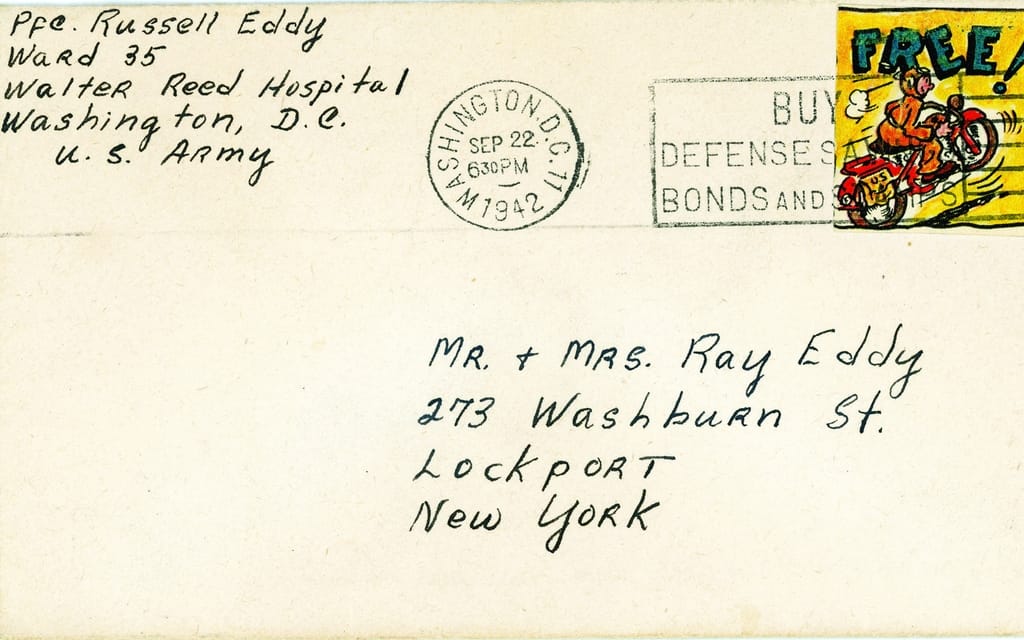 Pfc. Russell Eddy
Ward 35
Walter Reed Hospital
Washington, D.C.
U.S. Army
WASHINGTON, D.C. 11
SEP 22
630 PM
1942
BUY
DEFENSE SA
BONDS AND S MPS
FREE!
U.S.
Mr. + Mrs. Ray Eddy
273 Washburn St.
Lockport
New York